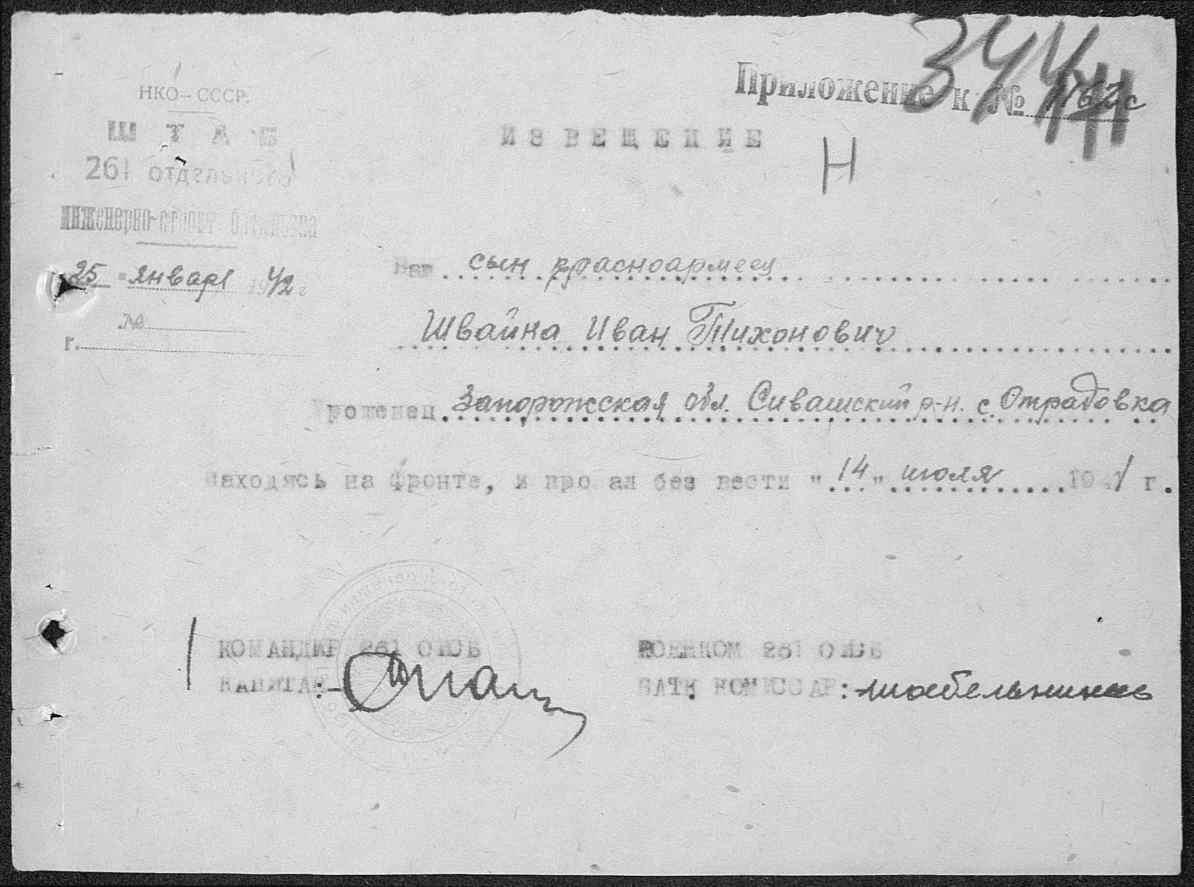 344
Приложение к №
НКО – СССР.
ШТАБ
ИЗВЕЩЕНИЕ
Н
261 отдельного
инженерно-строит батальона
"25" января 1942 г
Ваш сын красноармеец
№
г.
Швайка Иван Тихонович
Уроженец Запорожская обл. Сивашский р-н. с. Отрадовка
находясь на фронте, и пропал без вести "14" июля 1941 г.
КОМАНДИР 261 ОИСБ
ВОЕНКОМ 261 ОИСБ
КАПИТАН:
БАТ. КОМИССАР: Шабельников